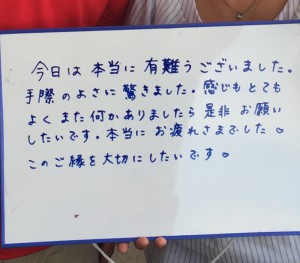 今日は本当に有難うございました。
手際のよさに驚きました。感じもとても
よくまた何かありましたら是非お願い
したいです。本当にお疲れさまでした♡
このご縁を大切にしたいです♡